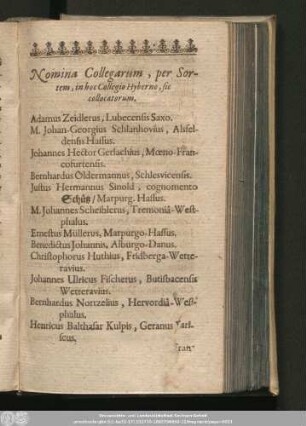 Nomina Collegarum, per Sor-
tem, in hoc Collegio Hyberno, sic
collocatorum.
Adamus Zeidlerus, Lubecensis Saxo.
M. Johan-Georgius Schlanhovius, Alsfel-
densis Hassus.
Johannes Hector Gerlachius, Mœno-Fran-
cofurtensis.
Bernhardus Oldermannus, Schlesvicensis.
Justus Hermannus Sinold, cognomento
Schütz / Marpurg. Hassus.
M. Johannes Scheiblerus, Tremoniâ-West-
phalus.
Ernestus Müllerus, Marpurgo-Hassus.
Benedictus Johannis, Alburgo-Danus.
Christophorus Huthius, Fridberga-Wette-
ravius.
Johannes Ulricus Fischerus, Butisbacensis
Wetteravius.
Bernhardus Nortzelius, Hervordiâ-West-
phalus.
Henricus Balthasar Kulpis, Geranus
scus.